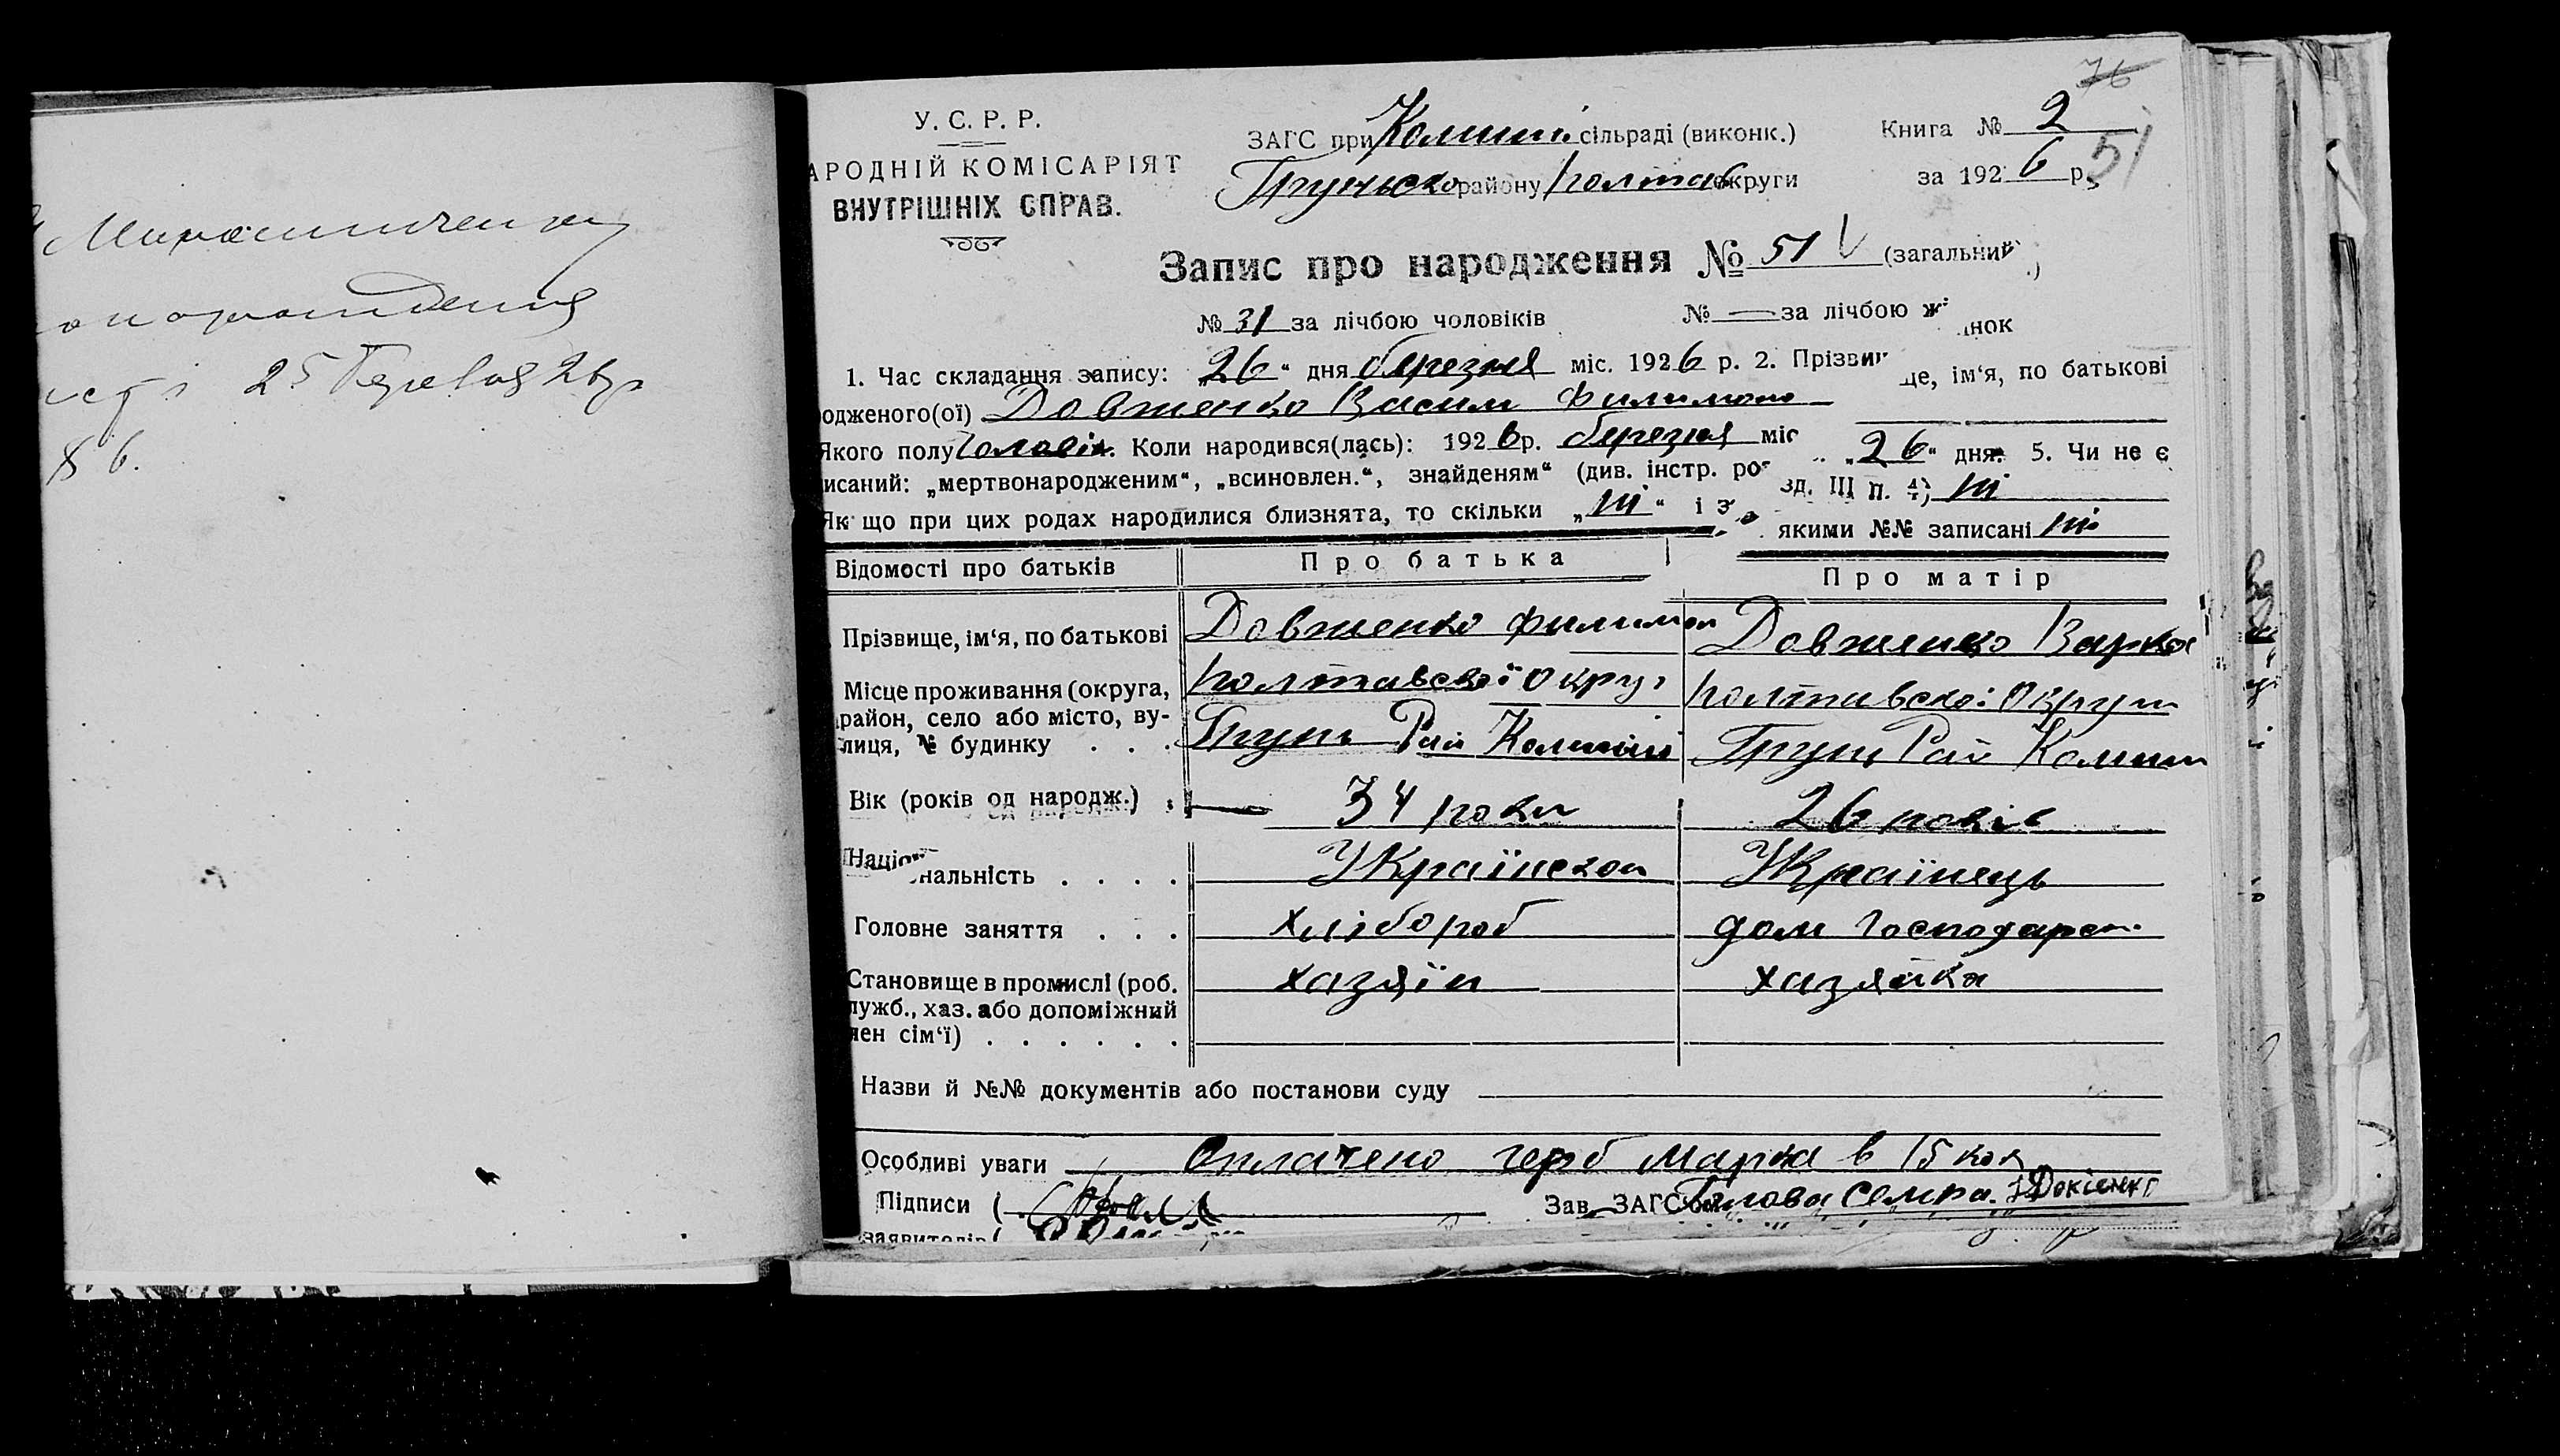 Мирошниченку
25 Березня 26 р
86.
76
У. С. Р. Р.
АРОДНІЙ КОМІСАРІЯТ
ВНУТРІШНІХ СПРАВ.
ЗАГС при Комиші сільраді (виконк.)
Груньско району Полтав округи
Книга № 2
за 1926 р.
51
Запис про народження № 51 (загальний)
№ 31 за лічбою чоловіків № — за лічбою жінок
1. Час складання запису: „26“ дня березня міс. 1926 р. 2. Прізвище, ім‘я, по батькові
одженого(ої) Довженко Василь Филимоно
Якого полу Чоловіч. Коли народився(лась): 1926 р. березня міс. „26“ дня. 5. Чи не є
исаний: „мертвонародженим“, „всиновлен.“, знайденям“ (див. інстр. розд. III п. 4) ні
Як що при цих родах народилися близнята, то скільки „ні“ і з якими №№ записані ні
Відомості про батьків Про батька Про матір
Прізвище, ім‘я, по батькові Довженко Филимон Довженко Варка
Місце проживання (округа, Полтавської Округ Полтавської Округи
район, село або місто, ву-
лиця, № будинку . . . Грунь Рай Комиші Грунь Рай Комиш
Вік (років од народж.) . 34 роки 26 років
Національність . . . . Українськой Українець
Головне заняття . . . хлібороб дом господарст.
Становище в промислі (роб. хазяїн хазяйка
лужб., хаз. або допоміжний
лен сім‘ї) . . . . . .
Назви й №№ документів або постанови суду
Особливі уваги Оплачено герб марка в 15 коп
Підписи ( Зав. ЗАГС‘ом Голова Семра.
заявителів (